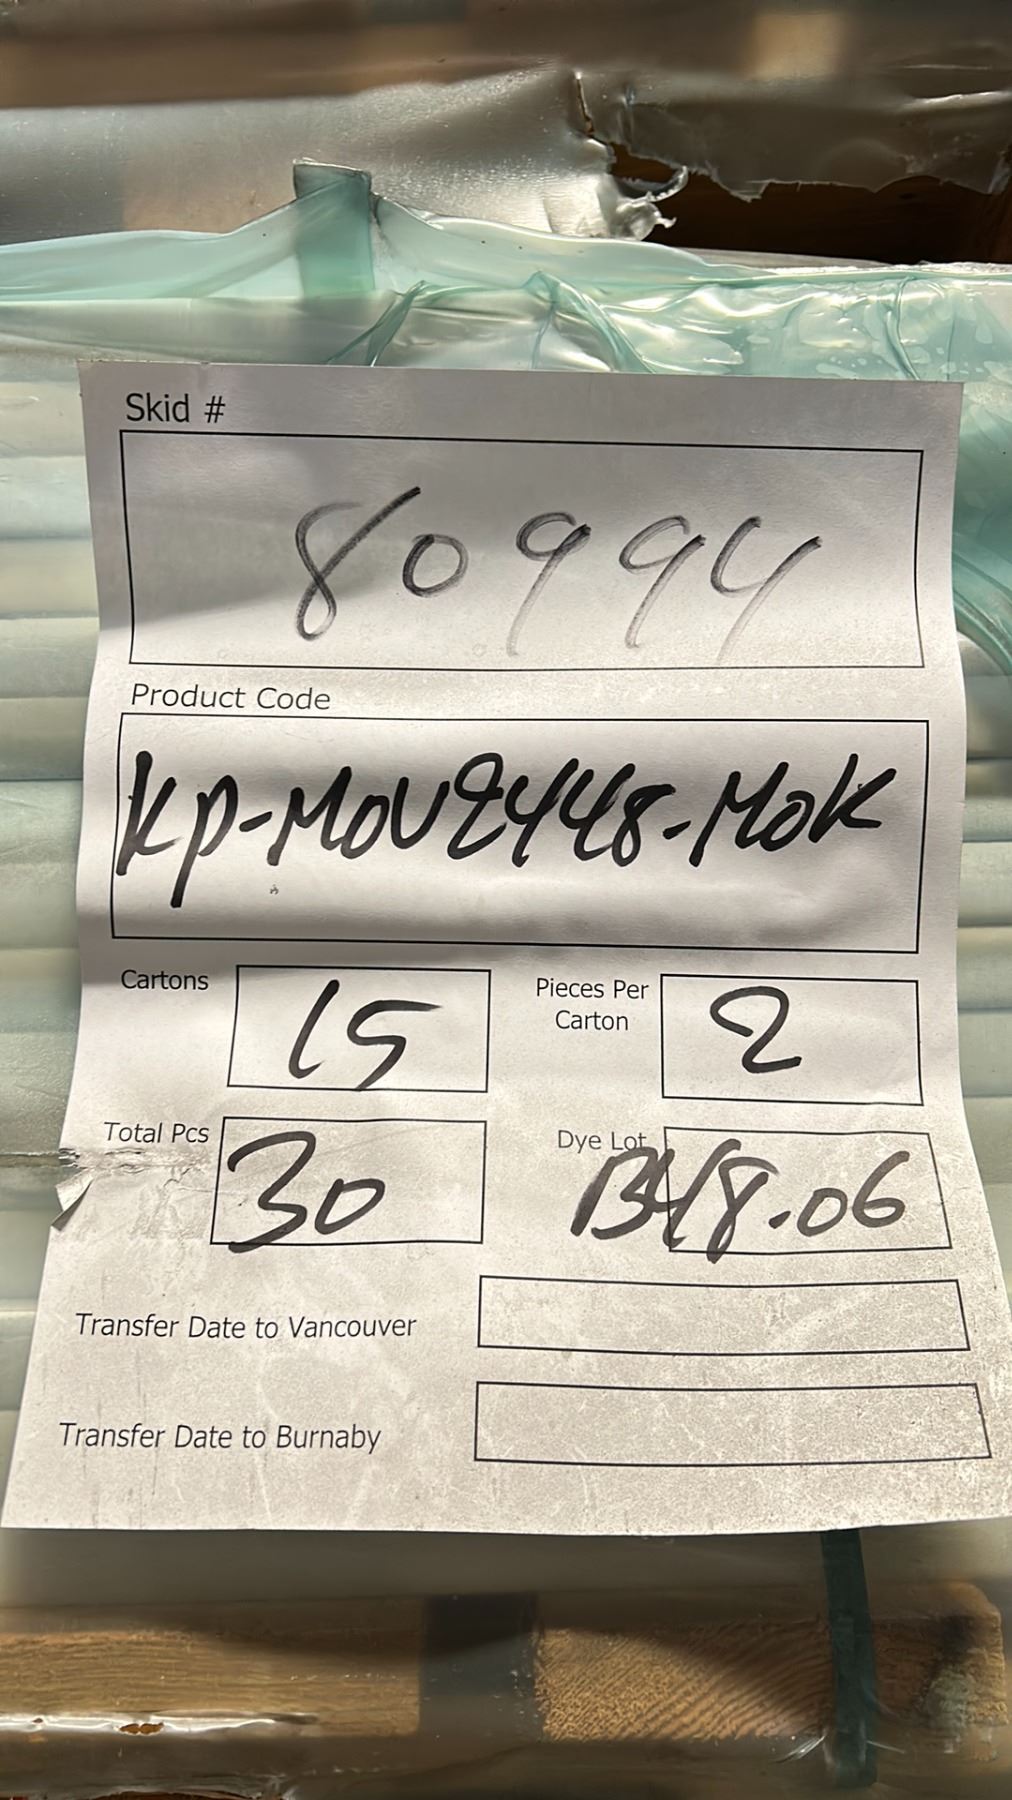 Skid #
80994
Product Code
KP-MOV2448-MOK
Cartons 15 Pieces Per Carton 2
Total Pcs 30 Dye Lot B48.06
Transfer Date to Vancouver
Transfer Date to Burnaby